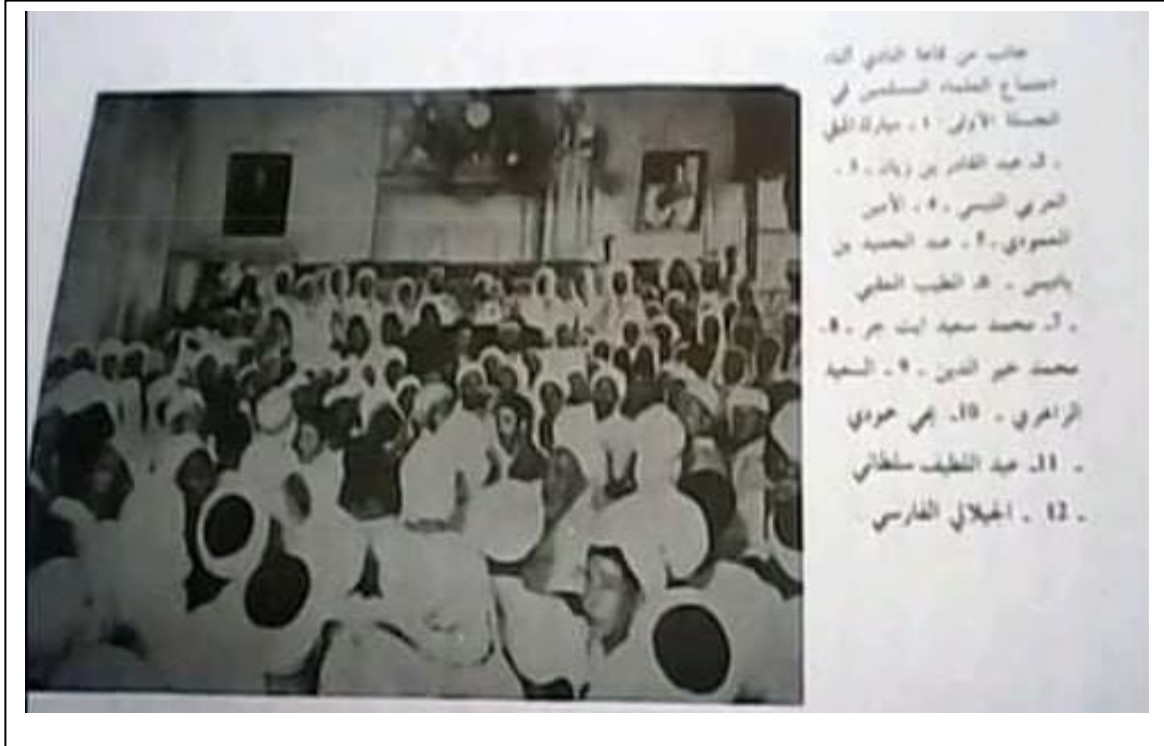 جانب من قاعة النادي أثناء
اجتماع العلماء المسلمين في
الجلسة الأولى 1 ـ مبارك الميلي
ـ 2ـ عبد القادر بن زيان ـ 3 ـ
العربي التبسي ـ 4 ـ الأمين
العمودي ـ 5 ـ عبد الحميد بن
باديس ـ 6ـ الطيب العقبي
ـ 7ـ محمد سعيد ايت جر ـ 8 ـ
محمد خير الدين ـ 9 ـ السعيد
الزاهري ـ 10ـ يحي حمودي
ـ 11ـ عبد اللطيف سلطاني
ـ 12 ـ الجيلالي الفارسي